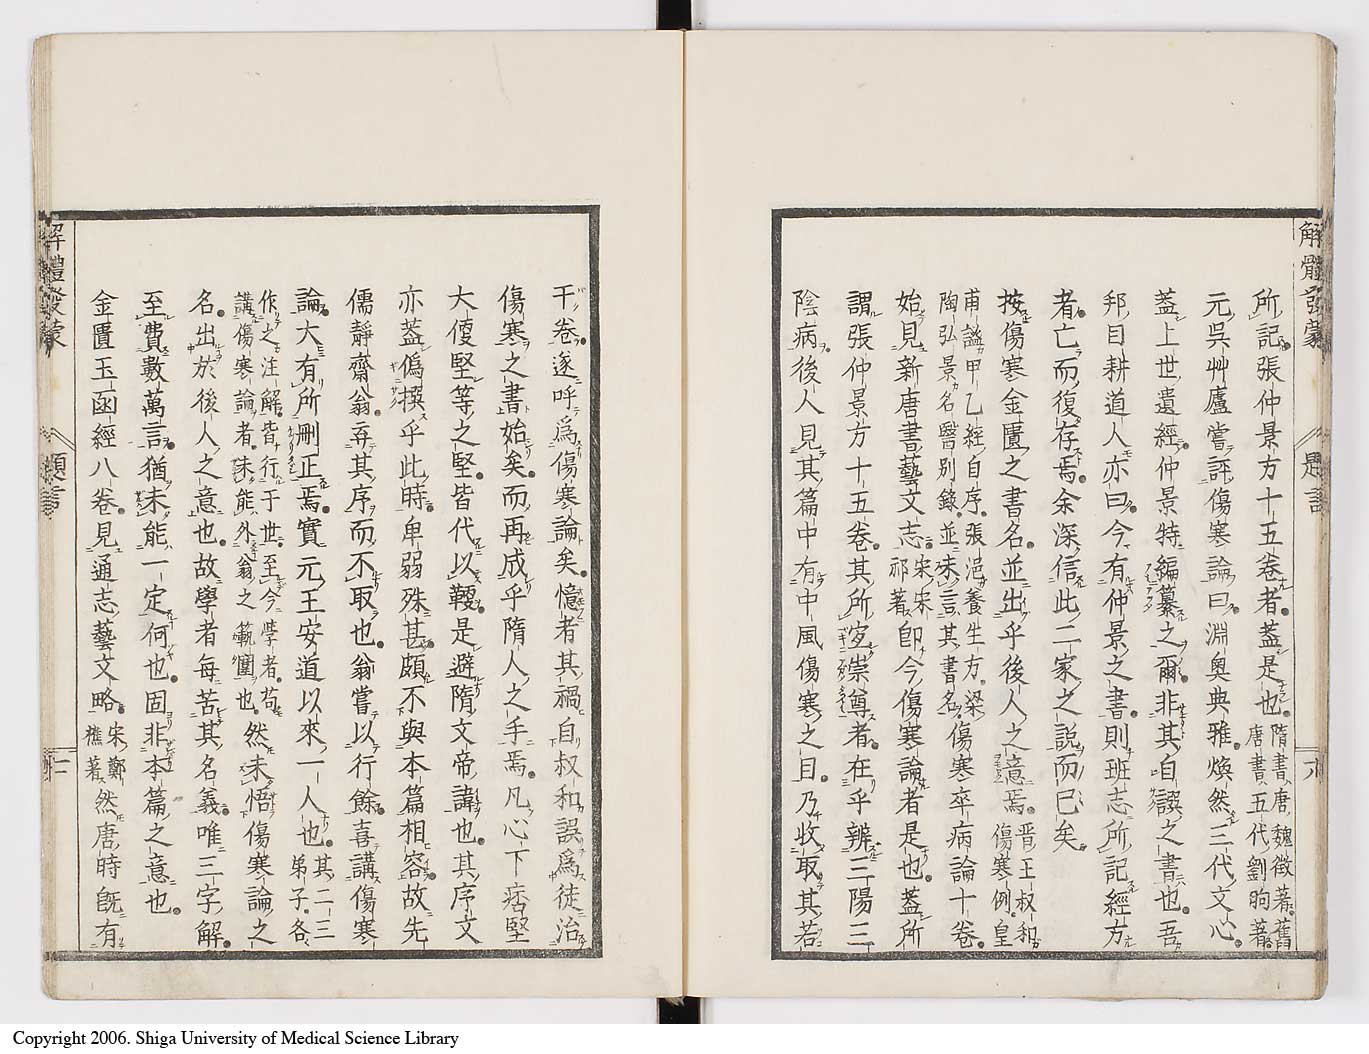 解體發蒙
題言
所記張仲景方十五卷者蓋是也隋書唐魏徵著舊唐書五代劉昫著
元吳艸廬嘗評傷寒論曰淵奧典雅煥然三代文心
蓋上世遺經仲景特編纂之爾非其自譔之書也吾
邦目耕道人亦曰今有仲景之書則班志所記經方
者亡而復存焉余深信此二家之說而已矣
按傷寒金匱之書名並出乎後人之意焉晉王叔和傷寒例皇
甫謐甲乙經自序張浥養生方梁陶弘景名醫別錄並未言其書名傷寒卒病論十卷
始見新唐書藝文志宋宋祁著卽今傷寒論者是也蓋所
謂張仲景方十五卷其所崇尊者在乎辨三陽三
陰病後人見其篇中有中風傷寒之目乃收取其若
干卷遂呼爲傷寒論矣憶者其禍自叔和誤爲徒治
傷寒之書始矣而再成乎隋人之手焉凡心下痞堅
大便堅等之堅皆代以鞕是避隋文帝諱也其序文
亦蓋僞撰乎此時卑弱殊甚頗不與本篇相容故先
儒靜齋翁弃其序而不取也翁嘗以行餘喜講傷寒
論大有所刪正焉實元王安道以來一人也其二三弟子各
作之注解皆行于世至今學者苟講傷寒論者未能外翁之範圍也然未悟傷寒論之
名出於後人之意也故學者每苦其名義唯三字解
至費數萬言猶未能一定何也固非本篇之意也
金匱玉函經八卷見通志藝文略宋鄭樵著然唐時旣有
解體發蒙
題言
Copyright 2006. Shiga University of Medical Science Library